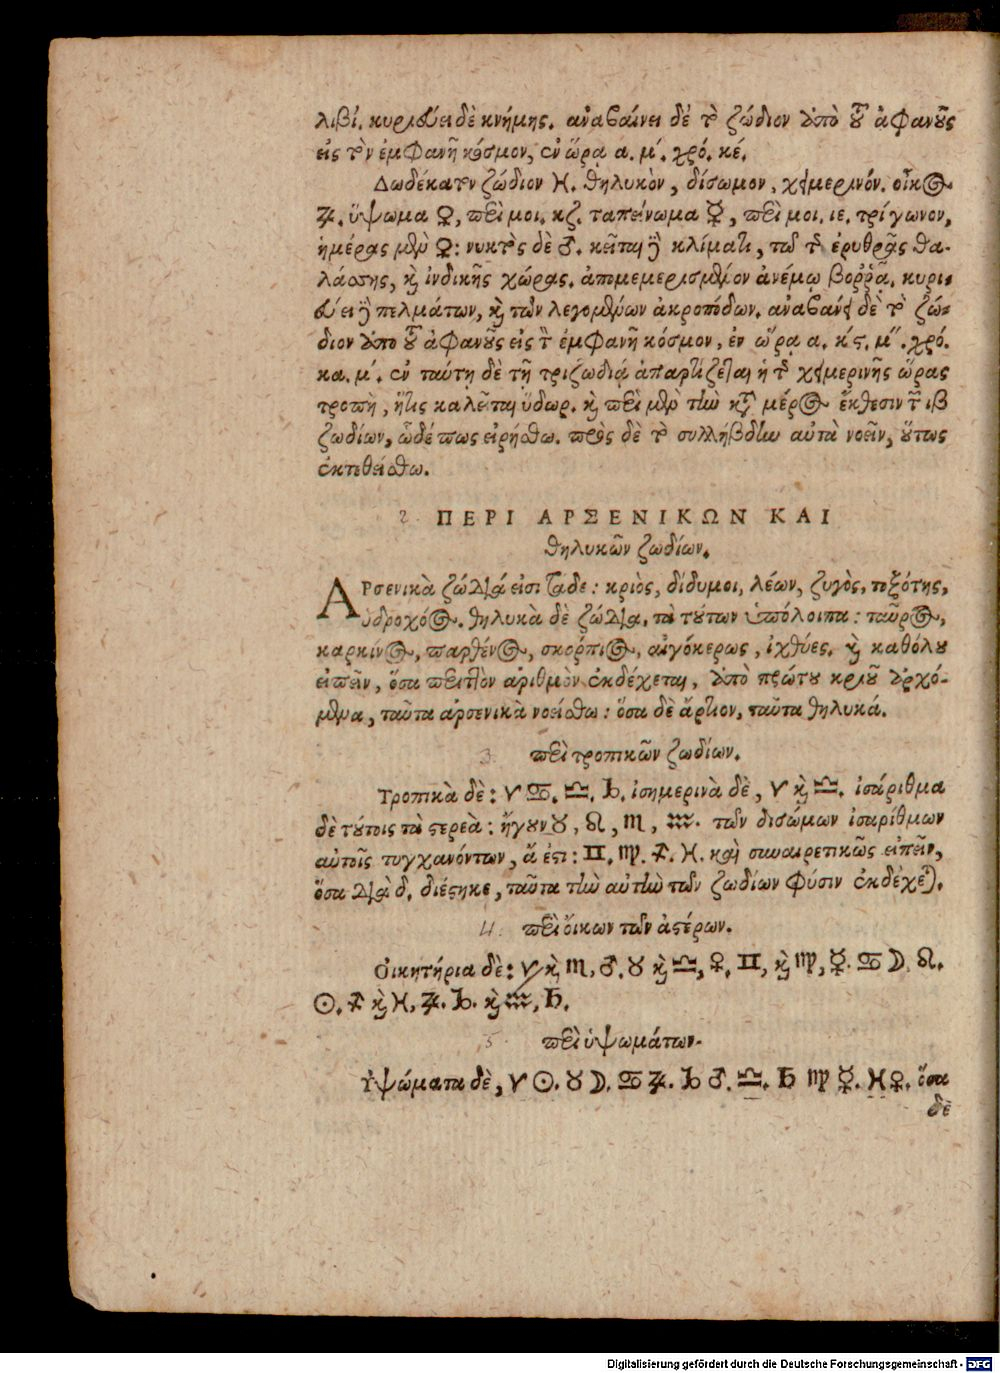 λιβί. κυριεύει δὲ κνήμης. ἀναβαίνει δὲ τὸ ζώδιον ἀπὸ τοῦ ἀφανοῦς
εἰς τὸν ἐμφανῆ κόσμον, ἐν ὥρα α. μ΄. χρό. κέ.
Δωδέκατον ζώδιον ♓. θηλυκὸν, δίσωμον, χειμερινόν. οἶκος
♃. ὕψωμα ♀, περὶ μοι. κζ. ταπείνωμα ☿, περὶ μοι. ιε. τρίγωνον,
ἡμέρας μὲν ♀: νυκτὸς δὲ ♂. κεῖται κλίματι, τῷ τῆς ἐρυθρᾶς θα-
λάσσης, καὶ ἰνδικῆς χώρας. ἀπομεμερισμένον ἀνέμῳ βοῤῥᾷ. κυρι-
εύει πελμάτων, καὶ τῶν λεγομένων ἀκροπόδων. ἀναβαίνει δὲ τὸ ζώ-
διον ἀπο τοῦ ἀφανοῦς εἰς τὸν ἐμφανῆ κόσμον, ἐν ὥρα α. κς. μ΄΄. χρό.
κα. μ΄. ἐν ταύτη δὲ τῆ τριζωδιά ἀπαρτίζεται ἡ τῆς χειμερινῆς ὥρας
τροπὴ, ἥτις καλεῖται ὕδωρ. καὶ περὶ μὲν τὴν κατὰ μέρος ἔκθεσιν τῶν ιβ
ζωδίων, ὧδέ πως εἰρήσθω. πρὸς δὲ τὸ συλλήβδην αὐτὰ νοεῖν, οὕτως
ἐκτεθείσθω.
2. ΠΕΡΙ ΑΡΣΕΝΙΚΩΝ ΚΑΙ
θηλυκῶν ζωδίων.
ΑΡσενικὰ ζώδιά εἰσι τάδε: κριὸς, δίδυμοι, λέων, ζυγὸς, τοξότης,
ὑδροχόος. θηλυκὰ δὲ ζώδια, τὰ τούτων ὑπόλοιπα: ταῦρος,
καρκίνος, παρθένος, σκορπίος, αἰγόκερως, ἰχθύες. καὶ καθόλου
εἰπεῖν, ὅσα περιττὸν ἀριθμὸν ἐκδέχεται, ἀπὸ πρώτου κριοῦ ἀρχό-
μενα, ταῦτα ἀρσενικὰ νοείσθω: ὅσα δὲ ἄρτιον, ταῦτα θηλυκά.
3. περὶ τροπικῶν ζωδίων.
Τροπικὰ δὲ: ♈ ♋. ♎. ♑. ἰσημερινὰ δὲ, ♈ καὶ ♎. ἰσάριθμα
δὲ τούτοις τὰ στερεὰ: ἤγουν ♉, ♌, ♏, ♒. τῶν δισώμων ἰσαρίθμων
αὐτοῖς τυγχανόντων, ἅ ἐστι: ♊. ♍. ♐. ♓. καὶ συναιρετικῶς εἰπεῖν,
ὅσα διὰ δ. διέστηκε, ταῦτα τὴν αὐτὴν τῶν ζωδίων φύσιν ἐκδέχεται.
4. περὶ οἴκων τῶν ἀστέρων.
Οἰκητήρια δὲ: ♈ καὶ ♏, ♂. ♉ καὶ ♎, ♀. ♊, καὶ ♍, ☿. ♋ ☽. ♌.
☉. ♐ καὶ ♓, ♃. ♑. καὶ ♒, ♄.
5. περὶ ὑψωμάτων.
Ὑψώματα δὲ, ♈ ☉. ♉ ☽. ♋ ♃. ♑ ♂. ♎. ♄ ♍ ☿. ♓ ♀. ὅσα
δὲ
Digitalisierung gefördert durch die Deutsche Forschungsgemeinschaft - DFG